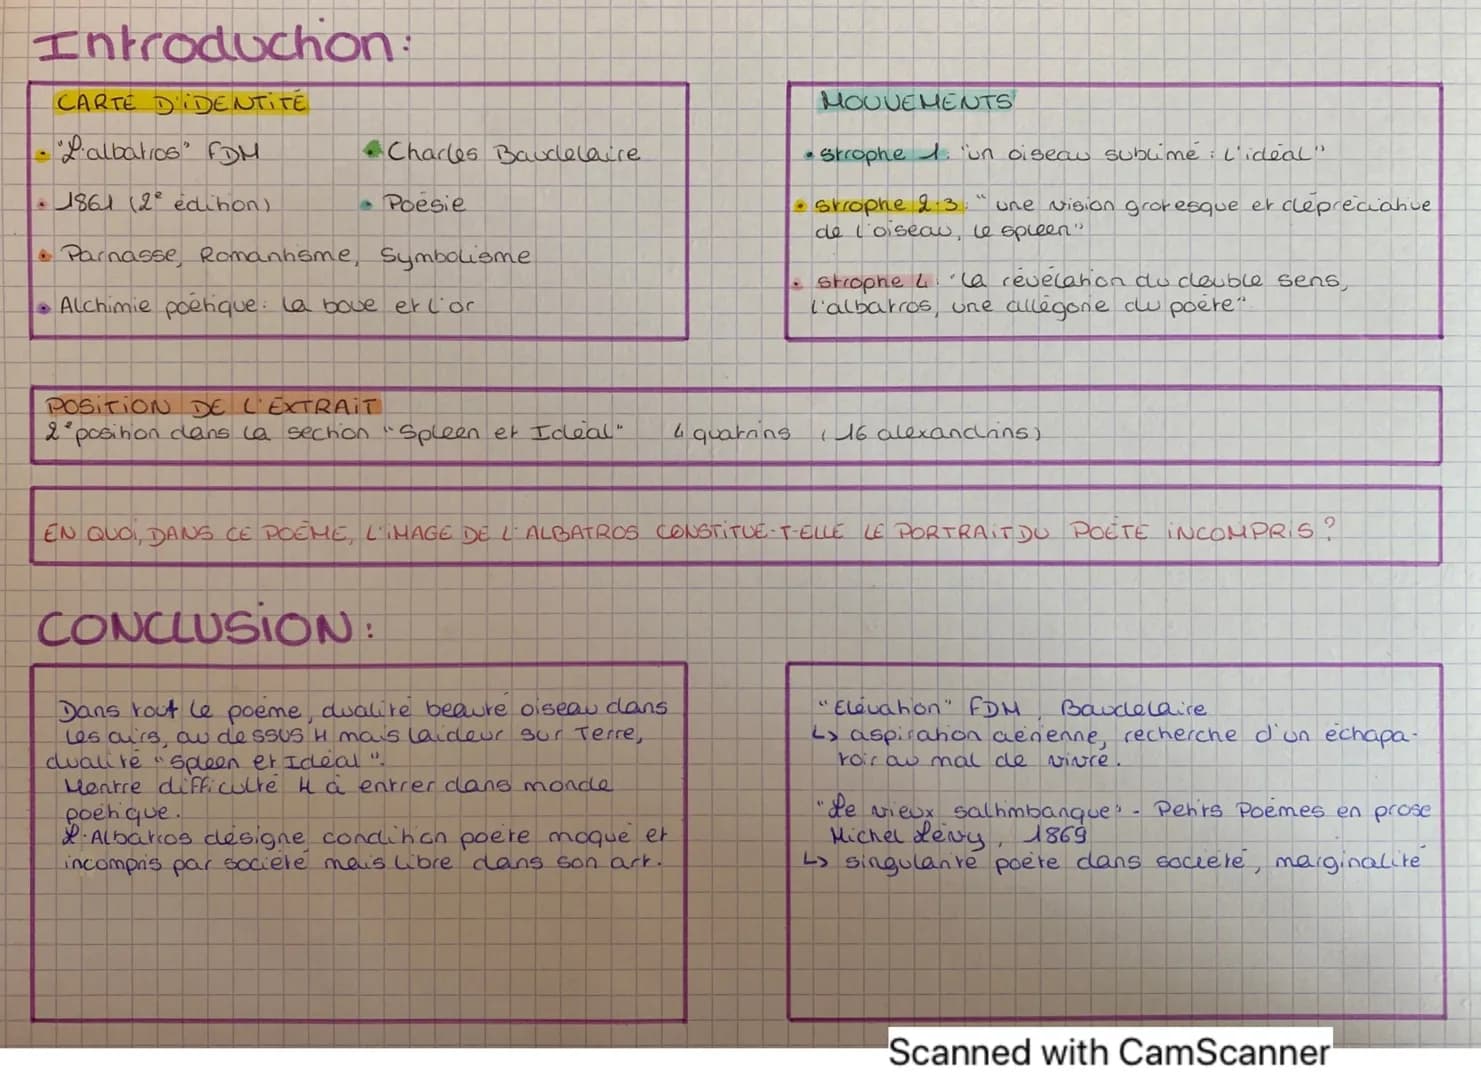 Introduction:
CARTE D'IDENTITÉ
"L'albatros" FDM
Charles Baudelaire
1861 (2e édition)
Poésie
Parnasse, Romantisme, Symbolisme
Alchimie poétique: la boue et l'or
MOUVEMENTS
strophe 1: "un oiseau sublimé: l'idéal"
strophe 2-3: "une vision grotesque et dépréciative
de l'oiseau, le spleen"
strophe 4: "la révélation du double sens,
l'albatros, une allégorie du poète"
POSITION DE L'EXTRAIT
2e position dans la section "Spleen et Idéal" 4 quatrins (16 alexandrins)
EN QUOI, DANS CE POÈME, L'IMAGE DE L'ALBATROS CONSTITUE-T-ELLE LE PORTRAIT DU POÈTE INCOMPRIS?
CONCLUSION:
Dans tout le poème, dualité beauté oiseau dans
les airs, au dessus H mais laideur sur Terre,
dualité "Spleen et Idéal".
Montre difficulté H à entrer dans monde
poétique.
L'Albatros désigne condition poète moqué et
incompris par société mais libre dans son art.
"Elévation" FDM, Baudelaire
↳ aspiration aérienne, recherche d'un échapa-
toir au mal de vivre.
"Le vieux saltimbanque" - Petits Poèmes en prose
Michel Lévy, 1869
↳ singularité poète dans société, marginalité
Scanned with CamScanner